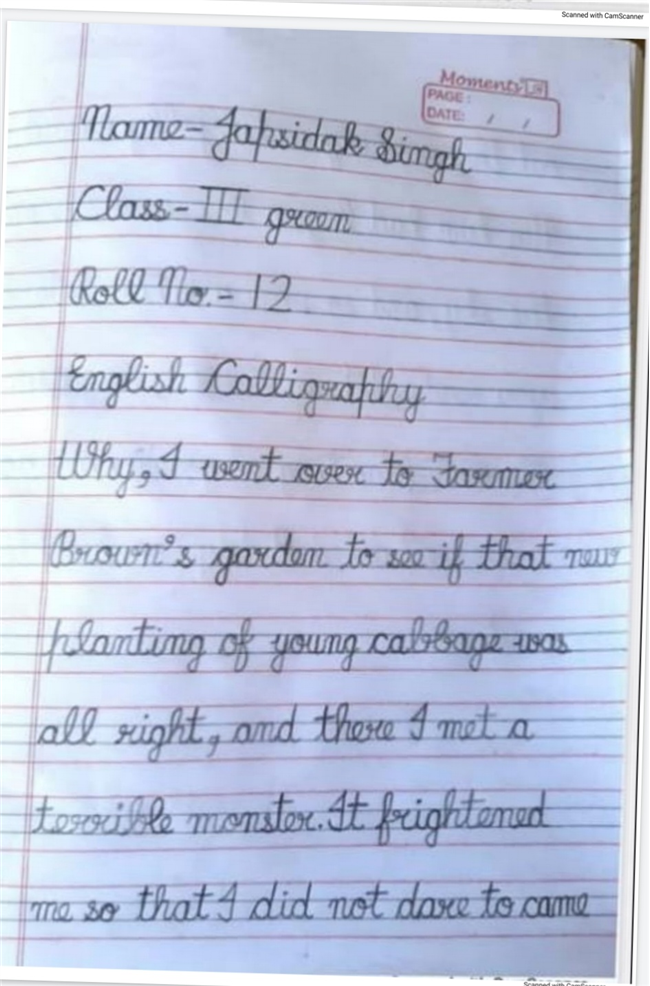 Scanned with CamScanner
Moments
PAGE:
DATE: / /
Name- Japsidak Singh
Class- III green
Roll No.- 12
English Calligraphy
Why, I went over to Farmer
Brown's garden to see if that new
planting of young cabbage was
all right, and there I met a
terrible monster. It frightened
me so that I did not dare to came
Scanned with CamScanner